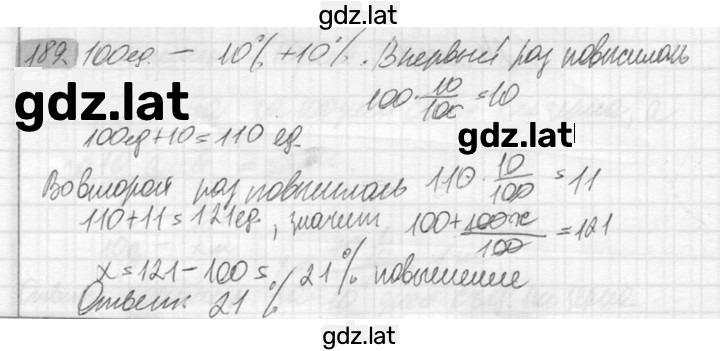 gdz.lat
189. 100ед — 10% +10%. В первый раз повысилась
100·10/100=10
gdz.lat
100ед+10=110 ед.
gdz.lat
Во второй раз повысилась 110·10/100=11
110+11=121ед, значит 100+100x/100=121
x=121-100=21% повышение
Ответ: 21%
gdz.lat